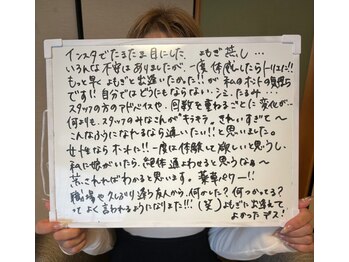 インスタでたまたま目にした よもぎ蒸し…
いろんな不安はありましたが、一度体験したらトリコに!!
もっと早くよもぎと出逢いたかった!! が 私のホントの気持ち
です!! 自分ではどうにもならない、シミ・たるみ…
スタッフの方のアドバイスや、回数を重ねるごとに変化が…
何よりも、スタッフのみなさんが"キラキラ。きれいすぎて〜
こんなふうになれるなら通いたい!! と思いました。
女性なら ホントに!! 一度は体験して欲しいと思うし、
私に娘がいたら、絶体通よわせると思うなぁ〜
蒸されればわかると思います。薬草パワー!!
職場や久しぶり逢う友人から、何かした? 何つかってる?
って よく言われるようになりました!!! (笑) よもぎに出逢えて
よかったデス!